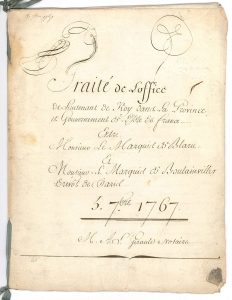 Traité de l'office
de Lieutenant de Roy dans La Province
et Gouvernement de l'Isle de france.
Entre
Monsieur Le Marquis de
Et
Monsieur Le Marquis de Boulainvilliers
Prévôt de Paris
5. 7.bre 1767.
Notaire